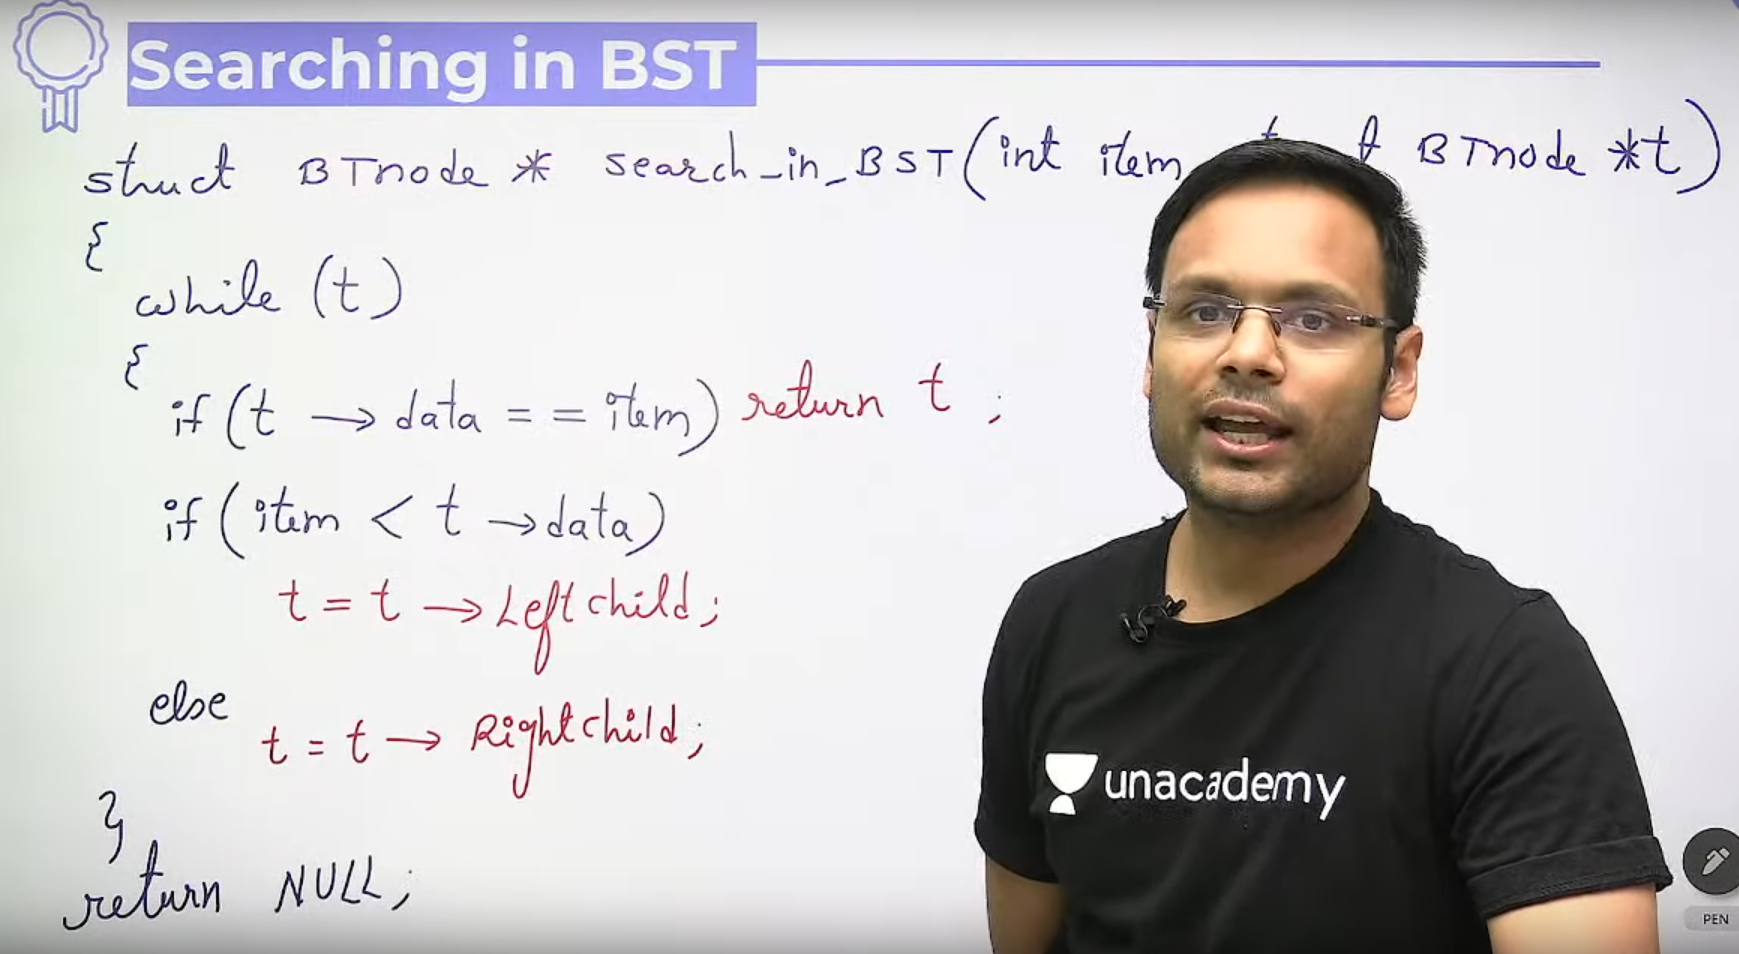 Searching in BST
struct BTnode * search_in_BST(int item BTnode *t)
{
while (t)
{
if (t → data == item) return t ;
if (item < t → data)
t = t → Leftchild;
else
t = t → Rightchild;
}
return NULL;
unacademy
PEN